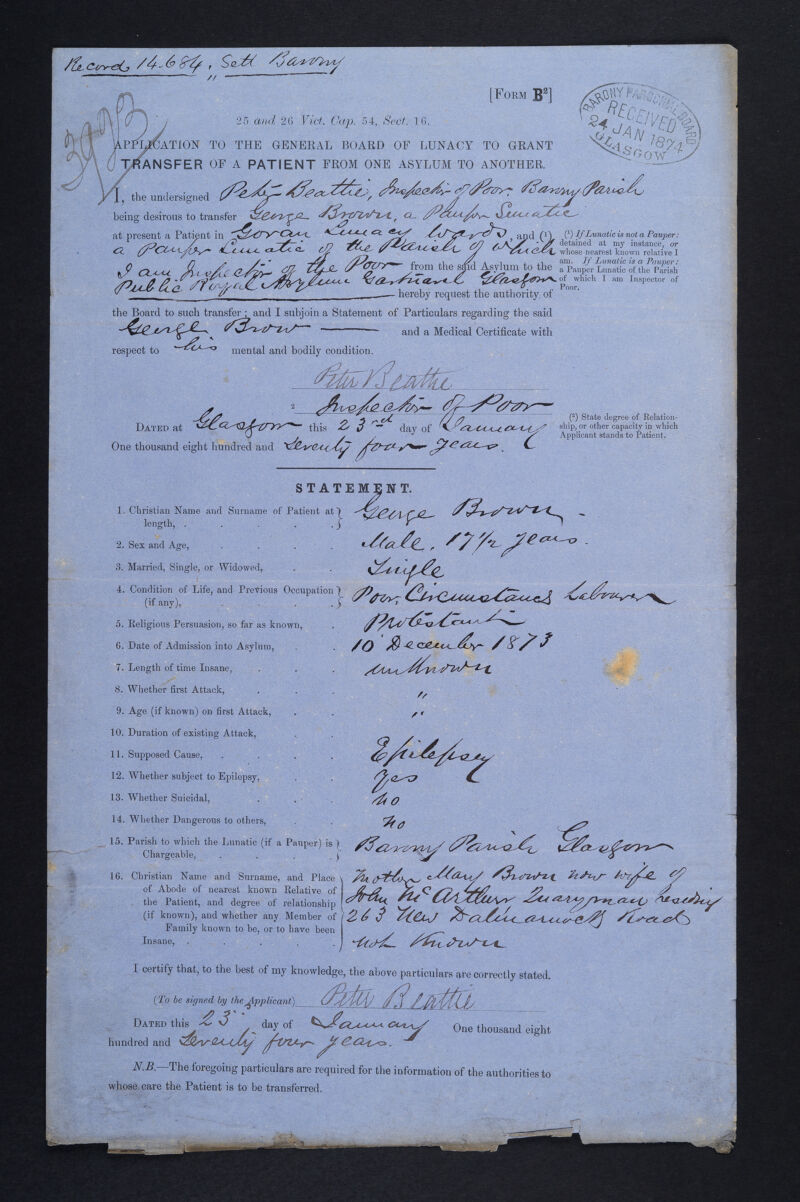 Record 14.684, Sett Barony
[FORM B²]
BARONY PAROCHIAL BOARD
RECEIVED
24 JAN 1874
GLASGOW
25 and 26 Vict. Cap. 54, Sect. 16.
APPLICATION TO THE GENERAL BOARD OF LUNACY TO GRANT
TRANSFER OF A PATIENT FROM ONE ASYLUM TO ANOTHER.
I, the undersigned Peter Beattie, Inspector of Poor, Barony Parish
being desirous to transfer George Brown, a Pauper Lunatic
at present a Patient in Govan Lunacy Wards, and (¹)
a Pauper Lunatic of the Parish of which
I am Inspector of the Poor from the said Asylum to the
Public Royal Asylum Gartnavel Glasgow
hereby request the authority of
the Board to such transfer; and I subjoin a Statement of Particulars regarding the said
George Brow and a Medical Certificate with
respect to his mental and bodily condition.
(¹) If Lunatic is not a Pauper:
detained at my instance, or
whose nearest known relative I
am. If Lunatic is a Pauper:
a Pauper Lunatic of the Parish
of which I am Inspector of
Poor.
Peter Beattie
² Inspector of Poor
DATED at Glasgow this 23rd day of January
One thousand eight hundred and Seventy four years.
(²) State degree of Relation-
ship, or other capacity in which
Applicant stands to Patient.
STATEMENT.
1. Christian Name and Surname of Patient at length, . George Brown
2. Sex and Age, Male. 17½ years.
3. Married, Single, or Widowed, Single
4. Condition of Life, and Previous Occupation (if any), Poor, Circumstances Labourer
5. Religious Persuasion, so far as known, Protestant
6. Date of Admission into Asylum, 10 December 1873
7. Length of time Insane, unknown
8. Whether first Attack, "
9. Age (if known) on first Attack, "
10. Duration of existing Attack,
11. Supposed Cause, Epilepsey
12. Whether subject to Epilepsy, Yes
13. Whether Suicidal, no
14. Whether Dangerous to others, no
15. Parish to which the Lunatic (if a Pauper) is Chargeable, Barony Parish Glasgow
16. Christian Name and Surname, and Place
of Abode of nearest known Relative of
the Patient, and degree of relationship
(if known), and whether any Member of
Family known to be, or to have been
Insane,
Mother Mary Brown now wife of
John McArthur Quaryman residing
263 New Dalmarnock Road
not Known
I certify that, to the best of my knowledge, the above particulars are correctly stated.
(To be signed by the Applicant) Peter Beattie
DATED this 23 day of January One thousand eight
hundred and Seventy four years.
N.B.—The foregoing particulars are required for the information of the authorities to
whose care the Patient is to be transferred.